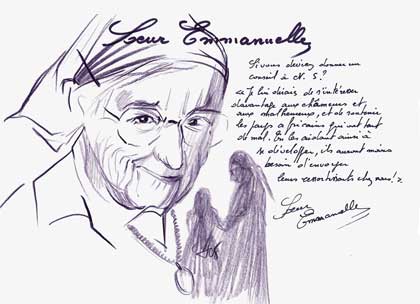 Sœur Emmanuelle
Si vous deviez donner un
conseil à N. S. ?
« Je lui dirais de s'intéresser
davantage aux chômeurs et
aux malheureux, et de soutenir
les pays africains qui ont tant
de mal. En les aidant ainsi à
se développer, ils auront moins
besoin d'envoyer
leurs ressortissants chez nous ! »
Sœur
Emmanuelle